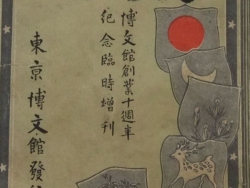 博文館創業十週年
紀念臨時增刊
東京博文館發